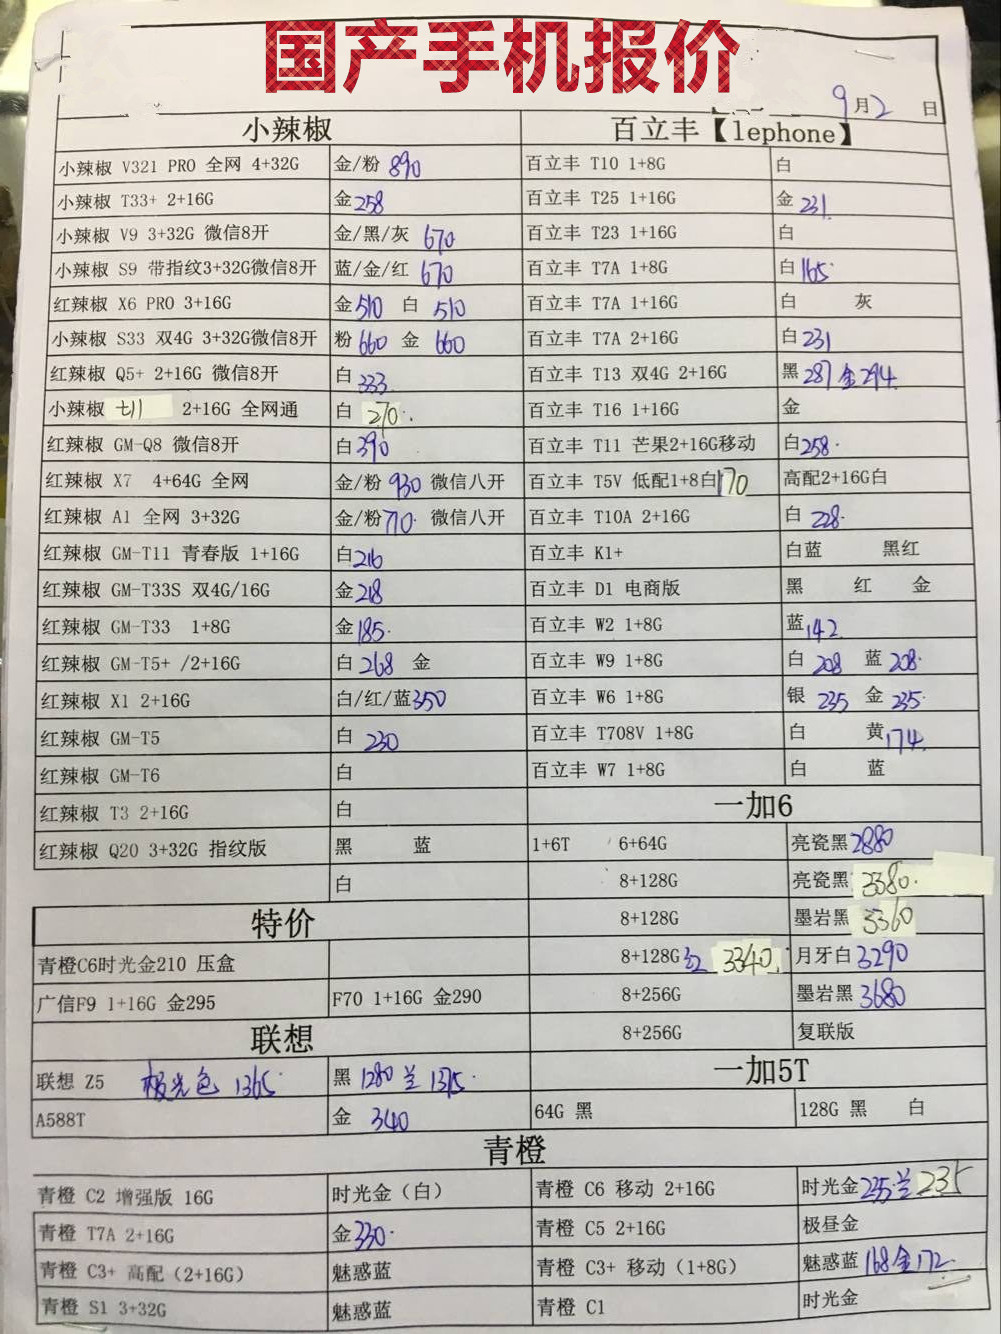 国产手机报价
9月2日
小辣椒 百立丰【lephone】
小辣椒 V321 PRO 全网 4+32G 金/粉 890 百立丰 T10 1+8G 白
小辣椒 T33+ 2+16G 金258 百立丰 T25 1+16G 金 231
小辣椒 V9 3+32G 微信8开 金/黑/灰 670 百立丰 T23 1+16G 白
小辣椒 S9 带指纹3+32G微信8开 蓝/金/红 670 百立丰 T7A 1+8G 白165
红辣椒 X6 PRO 3+16G 金510 白 510 百立丰 T7A 1+16G 白 灰
小辣椒 S33 双4G 3+32G微信8开 粉660 金 660 百立丰 T7A 2+16G 白231
红辣椒 Q5+ 2+16G 微信8开 白333 百立丰 T13 双4G 2+16G 黑287 金294
小辣椒 2+16G 全网通 白 270 百立丰 T16 1+16G 金
红辣椒 GM-Q8 微信8开 白390 百立丰 T11 芒果2+16G移动 白258
红辣椒 X7 4+64G 全网 金/粉 930 微信八开 百立丰 T5V 低配1+8白170 高配2+16G白
红辣椒 A1 全网 3+32G 金/粉710 微信八开 百立丰 T10A 2+16G 白 228
红辣椒 GM-T11 青春版 1+16G 白216 百立丰 K1+ 白蓝 黑红
红辣椒 GM-T33S 双4G/16G 金218 百立丰 D1 电商版 黑 红 金
红辣椒 GM-T33 1+8G 金185 百立丰 W2 1+8G 蓝142
红辣椒 GM-T5+ /2+16G 白268 金 百立丰 W9 1+8G 白 208 蓝 208
红辣椒 X1 2+16G 白/红/蓝350 百立丰 W6 1+8G 银 235 金 235
红辣椒 GM-T5 白 230 百立丰 T708V 1+8G 白 黄174
红辣椒 GM-T6 白 百立丰 W7 1+8G 白 蓝
红辣椒 T3 2+16G 白 一加6
红辣椒 Q20 3+32G 指纹版 黑 蓝 1+6T 6+64G 亮瓷黑2880
白 8+128G 亮瓷黑 3380
特价 8+128G 墨岩黑 3360
青橙C6时光金210 压盒 8+128G红 3340 月牙白3290
广信F9 1+16G 金295 F70 1+16G 金290 8+256G 墨岩黑 3680
联想 8+256G 复联版
联想 Z5 极光色 1365 黑 1280 兰 1315 一加5T
A588T 金 340 64G 黑 128G 黑 白
青橙
青橙 C2 增强版 16G 时光金（白） 青橙 C6 移动 2+16G 时光金235兰235
青橙 T7A 2+16G 金330 青橙 C5 2+16G 极昼金
青橙 C3+ 高配（2+16G） 魅惑蓝 青橙 C3+ 移动（1+8G） 魅惑蓝 168金172
青橙 S1 3+32G 魅惑蓝 青橙 C1 时光金